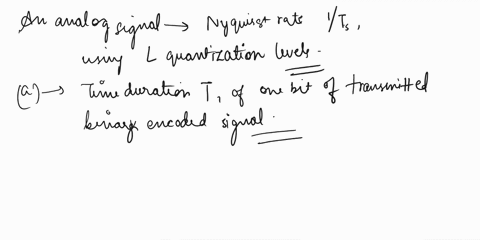 An analog signal → Nyquist rats 1/Ts,
using L quantization levels.
(a) → Time duration T, of one bit of transmitted
binary encoded signal.